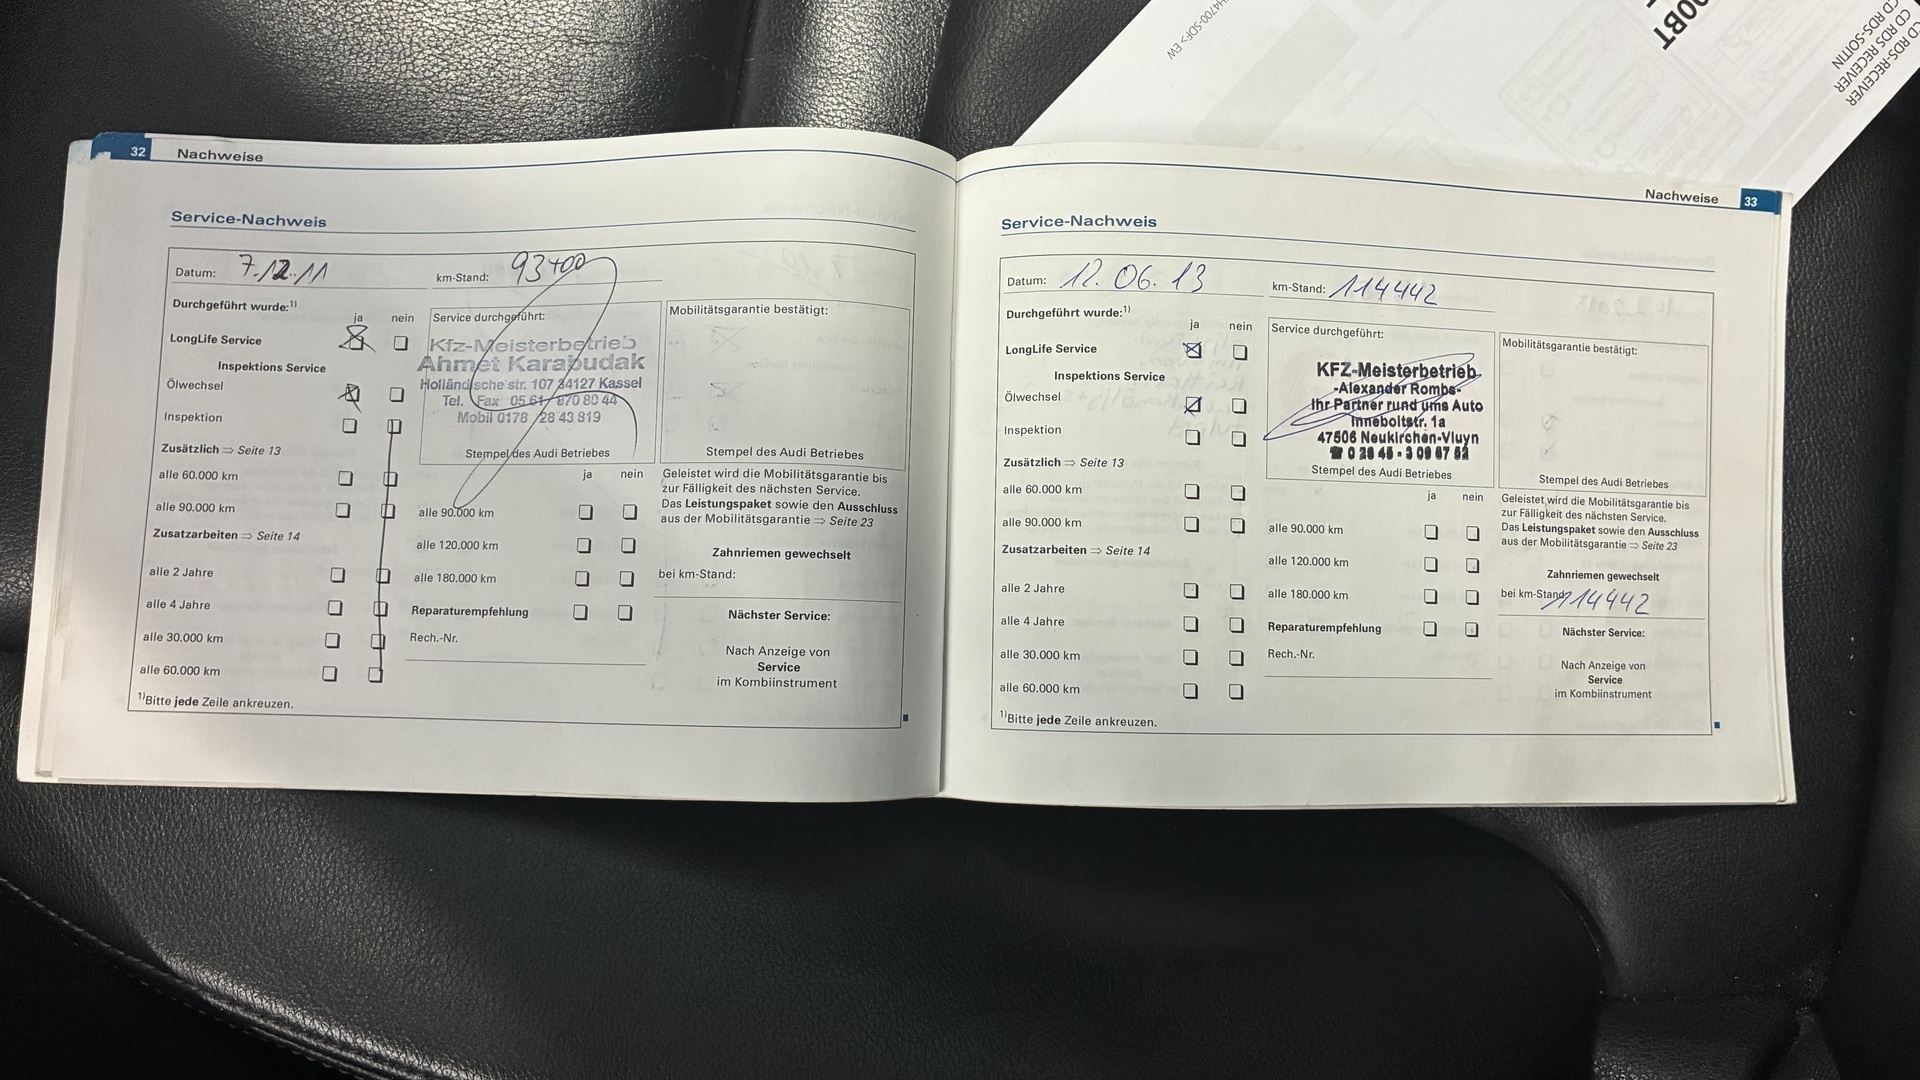 H4700-SDF> EW
00BT
CD RDS-RECEIVER
CD RDS RECEIVER
CD RDS-SOITIN
32 Nachweise
Service-Nachweis
Datum: 7.12.11 km-Stand: 93400
Durchgeführt wurde:1)
ja nein
LongLife Service
Inspektions Service
Ölwechsel
Inspektion
Zusätzlich ⇒ Seite 13
alle 60.000 km
alle 90.000 km
Zusatzarbeiten ⇒ Seite 14
alle 2 Jahre
alle 4 Jahre
alle 30.000 km
alle 60.000 km
1)Bitte jede Zeile ankreuzen.
Service durchgeführt:
Kfz-Meisterbetrieb
Ahmet Karabudak
Holländische str. 107 34127 Kassel
Tel. Fax 05 61/ 870 80 44
Mobil 0178 /28 43 819
Stempel des Audi Betriebes
ja nein
alle 90.000 km
alle 120.000 km
alle 180.000 km
Reparaturempfehlung
Rech.-Nr.
Mobilitätsgarantie bestätigt:
Stempel des Audi Betriebes
Geleistet wird die Mobilitätsgarantie bis
zur Fälligkeit des nächsten Service.
Das Leistungspaket sowie den Ausschluss
aus der Mobilitätsgarantie ⇒ Seite 23
Zahnriemen gewechselt
bei km-Stand:
Nächster Service:
Nach Anzeige von
Service
im Kombiinstrument
Nachweise 33
Service-Nachweis
Datum: 12.06.13 km-Stand: 114442
Durchgeführt wurde:1)
ja nein
LongLife Service
Inspektions Service
Ölwechsel
Inspektion
Zusätzlich ⇒ Seite 13
alle 60.000 km
alle 90.000 km
Zusatzarbeiten ⇒ Seite 14
alle 2 Jahre
alle 4 Jahre
alle 30.000 km
alle 60.000 km
1)Bitte jede Zeile ankreuzen.
Service durchgeführt:
KFZ-Meisterbetrieb
-Alexander Rombs-
Ihr Partner rund ums Auto
Inneboltstr. 1a
47506 Neukirchen-Vluyn
☎ 0 28 45 - 3 09 67 52
Stempel des Audi Betriebes
ja nein
alle 90.000 km
alle 120.000 km
alle 180.000 km
Reparaturempfehlung
Rech.-Nr.
Mobilitätsgarantie bestätigt:
Stempel des Audi Betriebes
Geleistet wird die Mobilitätsgarantie bis
zur Fälligkeit des nächsten Service.
Das Leistungspaket sowie den Ausschluss
aus der Mobilitätsgarantie ⇒ Seite 23
Zahnriemen gewechselt
bei km-Stand: 114442
Nächster Service:
Nach Anzeige von
Service
im Kombiinstrument